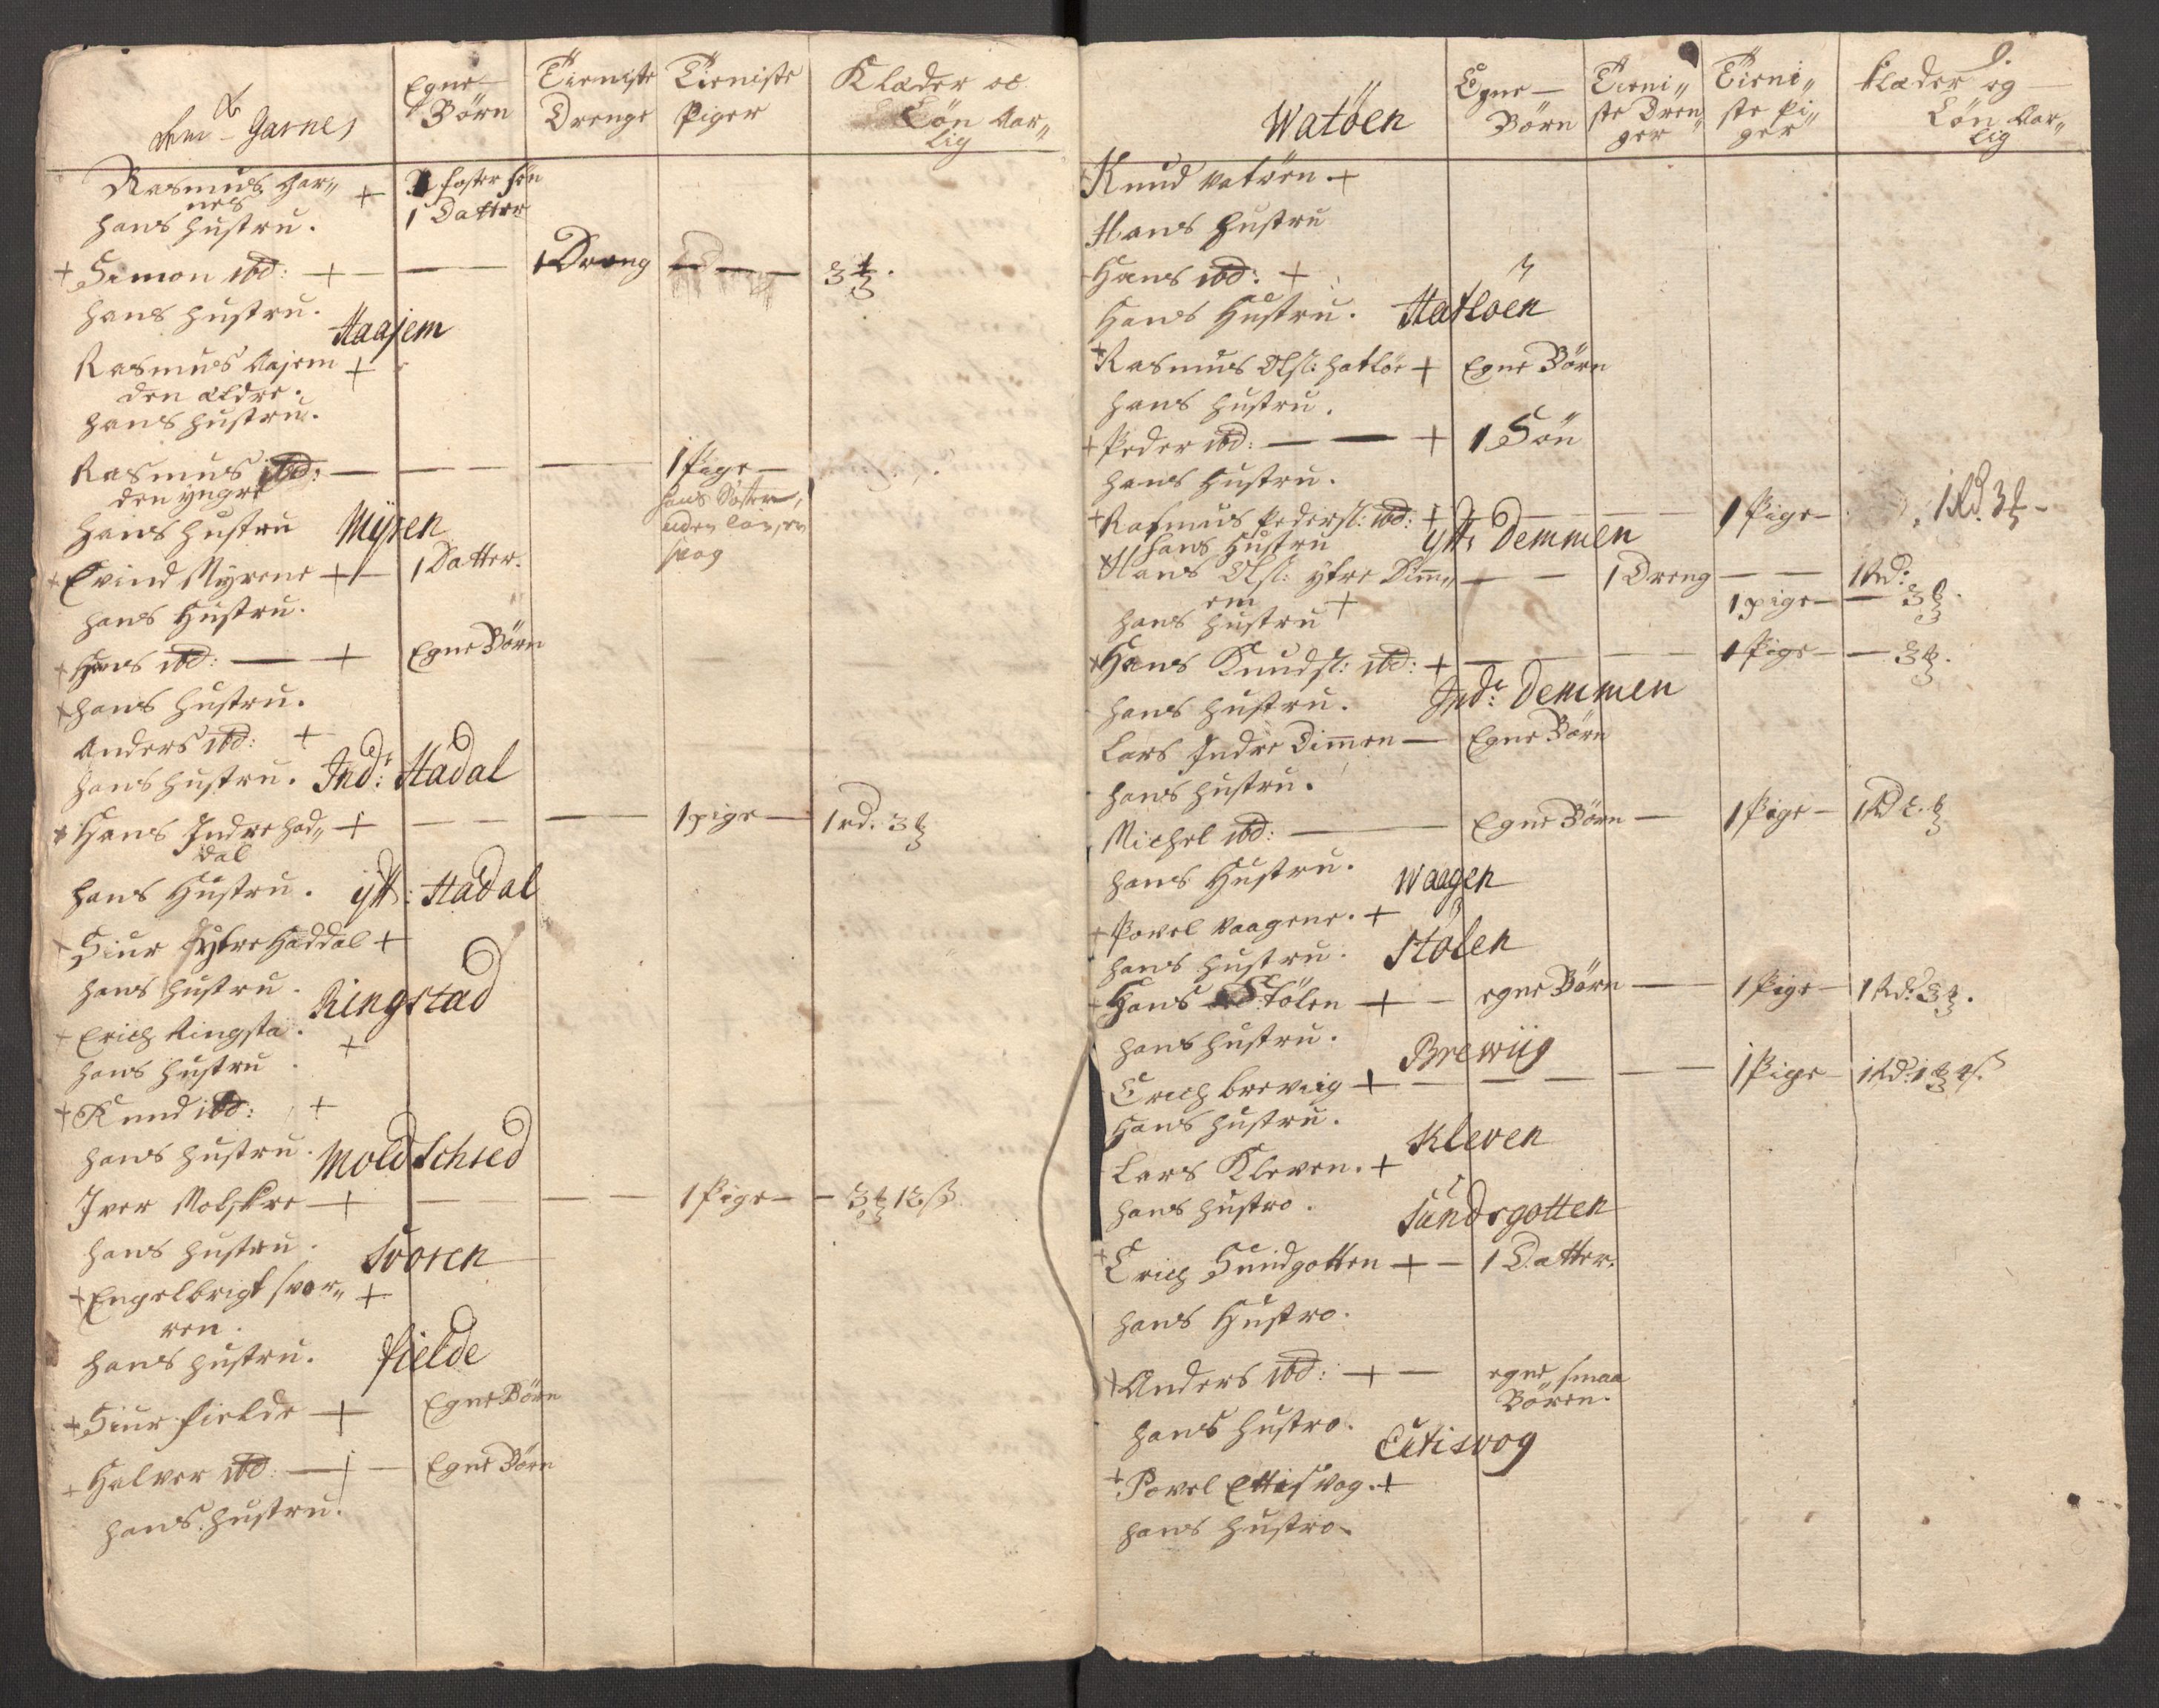 Garnes
Egne Börn
Tieniste Drenge
Tieniste Piger
Klæder oc Lön Aarlig
Rasmus Garnes +
1 foster sön
1 Datter
hans hustru.
+ Simon ibd: + — — 1 Dreng — — 3
hans hustru.
Haajem
Rasmus Aajem +
den ældre.
hans hustru.
Rasmus ibd: — — — — 1 Pige —
den yngre
hans Söster,
uden lön
hans hustru
Myren
+ Evind Myrene + — 1 Datter.
hans Hustru.
+ Hans ibd: — + Egne Börn
hans hustru.
Anders ibd: +
hans hustru.
Ind: Hadal
+ Hans Indre Haddal + — — — 1 pige — 1 rd. 3
hans Hustru.
ytt: Hadal
+ Siur Yttre Haddal +
hans hustru.
Ringstad
+ Erich Ringsta. +
hans hustru
+ Knud ibd: +
hans hustru.
Moldschred
Iver Molskre — + — — — 1 Pige — 3 12 ß
hans hustru.
Svoren
+ Engelbrigt Svorren. +
hans hustru.
fielde
+ Siur fielde — + Egne Börn
+ Halvor ibd: — + — Egne Börn
hans hustru.
9.
Watöen
Egne Börn
Tieniste Drenger
Tieniste Piger
Klæder og Lön Aarlig
Knud Vatöen +
Hans hustru
Hans ibd: +
Hans Hustru.
Hatlöen
+ Rasmus Olss: Hatlöe + Egne Börn
hans hustru.
+ Peder ibd: — — + 1 Sön
hans hustru.
+ Rasmus Peders: ibd: + — — 1 Pige — 1 Rd. 3 —
hans Hustru
ytt: Demmen
+ Hans Olss: ytre Dimmem + — — 1 Dreng — — 1 Rd:
1 pige — — 3
hans hustru
+ Hans Knuds: ibd: + — — 1 Pige — — 3
hans hustru.
Ind: Demmen
Lars Indre Dimmen — Egne Börn
hans hustru.
Michel ibd: — Egne Börn — 1 Pige — 1 Rd 2
hans Hustru.
Waagen
+ Povel Vaagene. +
hans hustru.
Stölen
+ Hans Stölen + — egne Börn — 1 Pige — 1 Rd: 3
hans hustru.
Brewiig
Erich breviig + — — — — 1 Pige — 1 Rd: 1
Hans hustru.
Kleven
Lars Kleven. +
hans hustro.
Sundsgotten
+ Erich Sundgotten + — 1 Datter.
hans Hustro.
+ Anders ibd: + — egne smaa Bören.
hans hustro.
Eitisvog
+ Povel Ettisvog. +
hans hustro